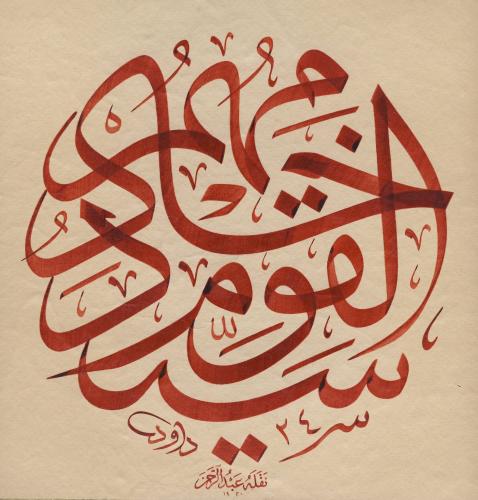 سيد القوم خادمهم
داود ٢٤
نقله عبد الرحمن